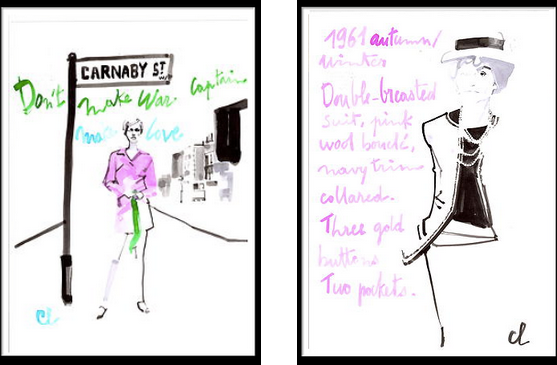 CARNABY ST.
Don't make War. Captain
make love
CL
1961 autumn/
winter
Double-breasted
suit, pink
wool bouclé,
navy trim
collared.
Three gold
buttons
Two pockets.
CL